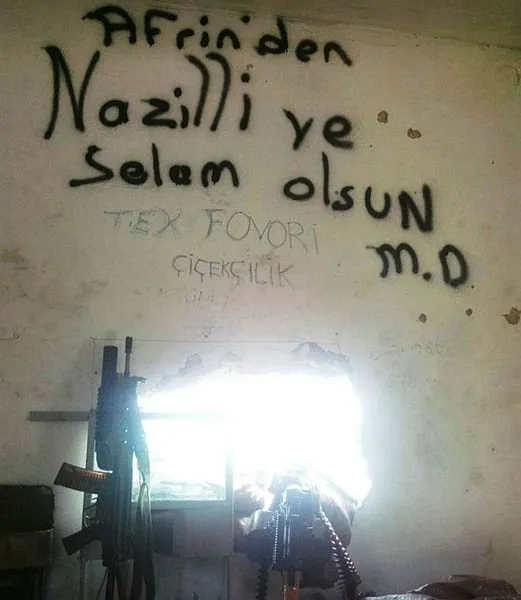 Afrin'den
Nazilli ye
Selam olsUN
M.D
TEX FOVORİ
ÇİÇEKÇİLİK